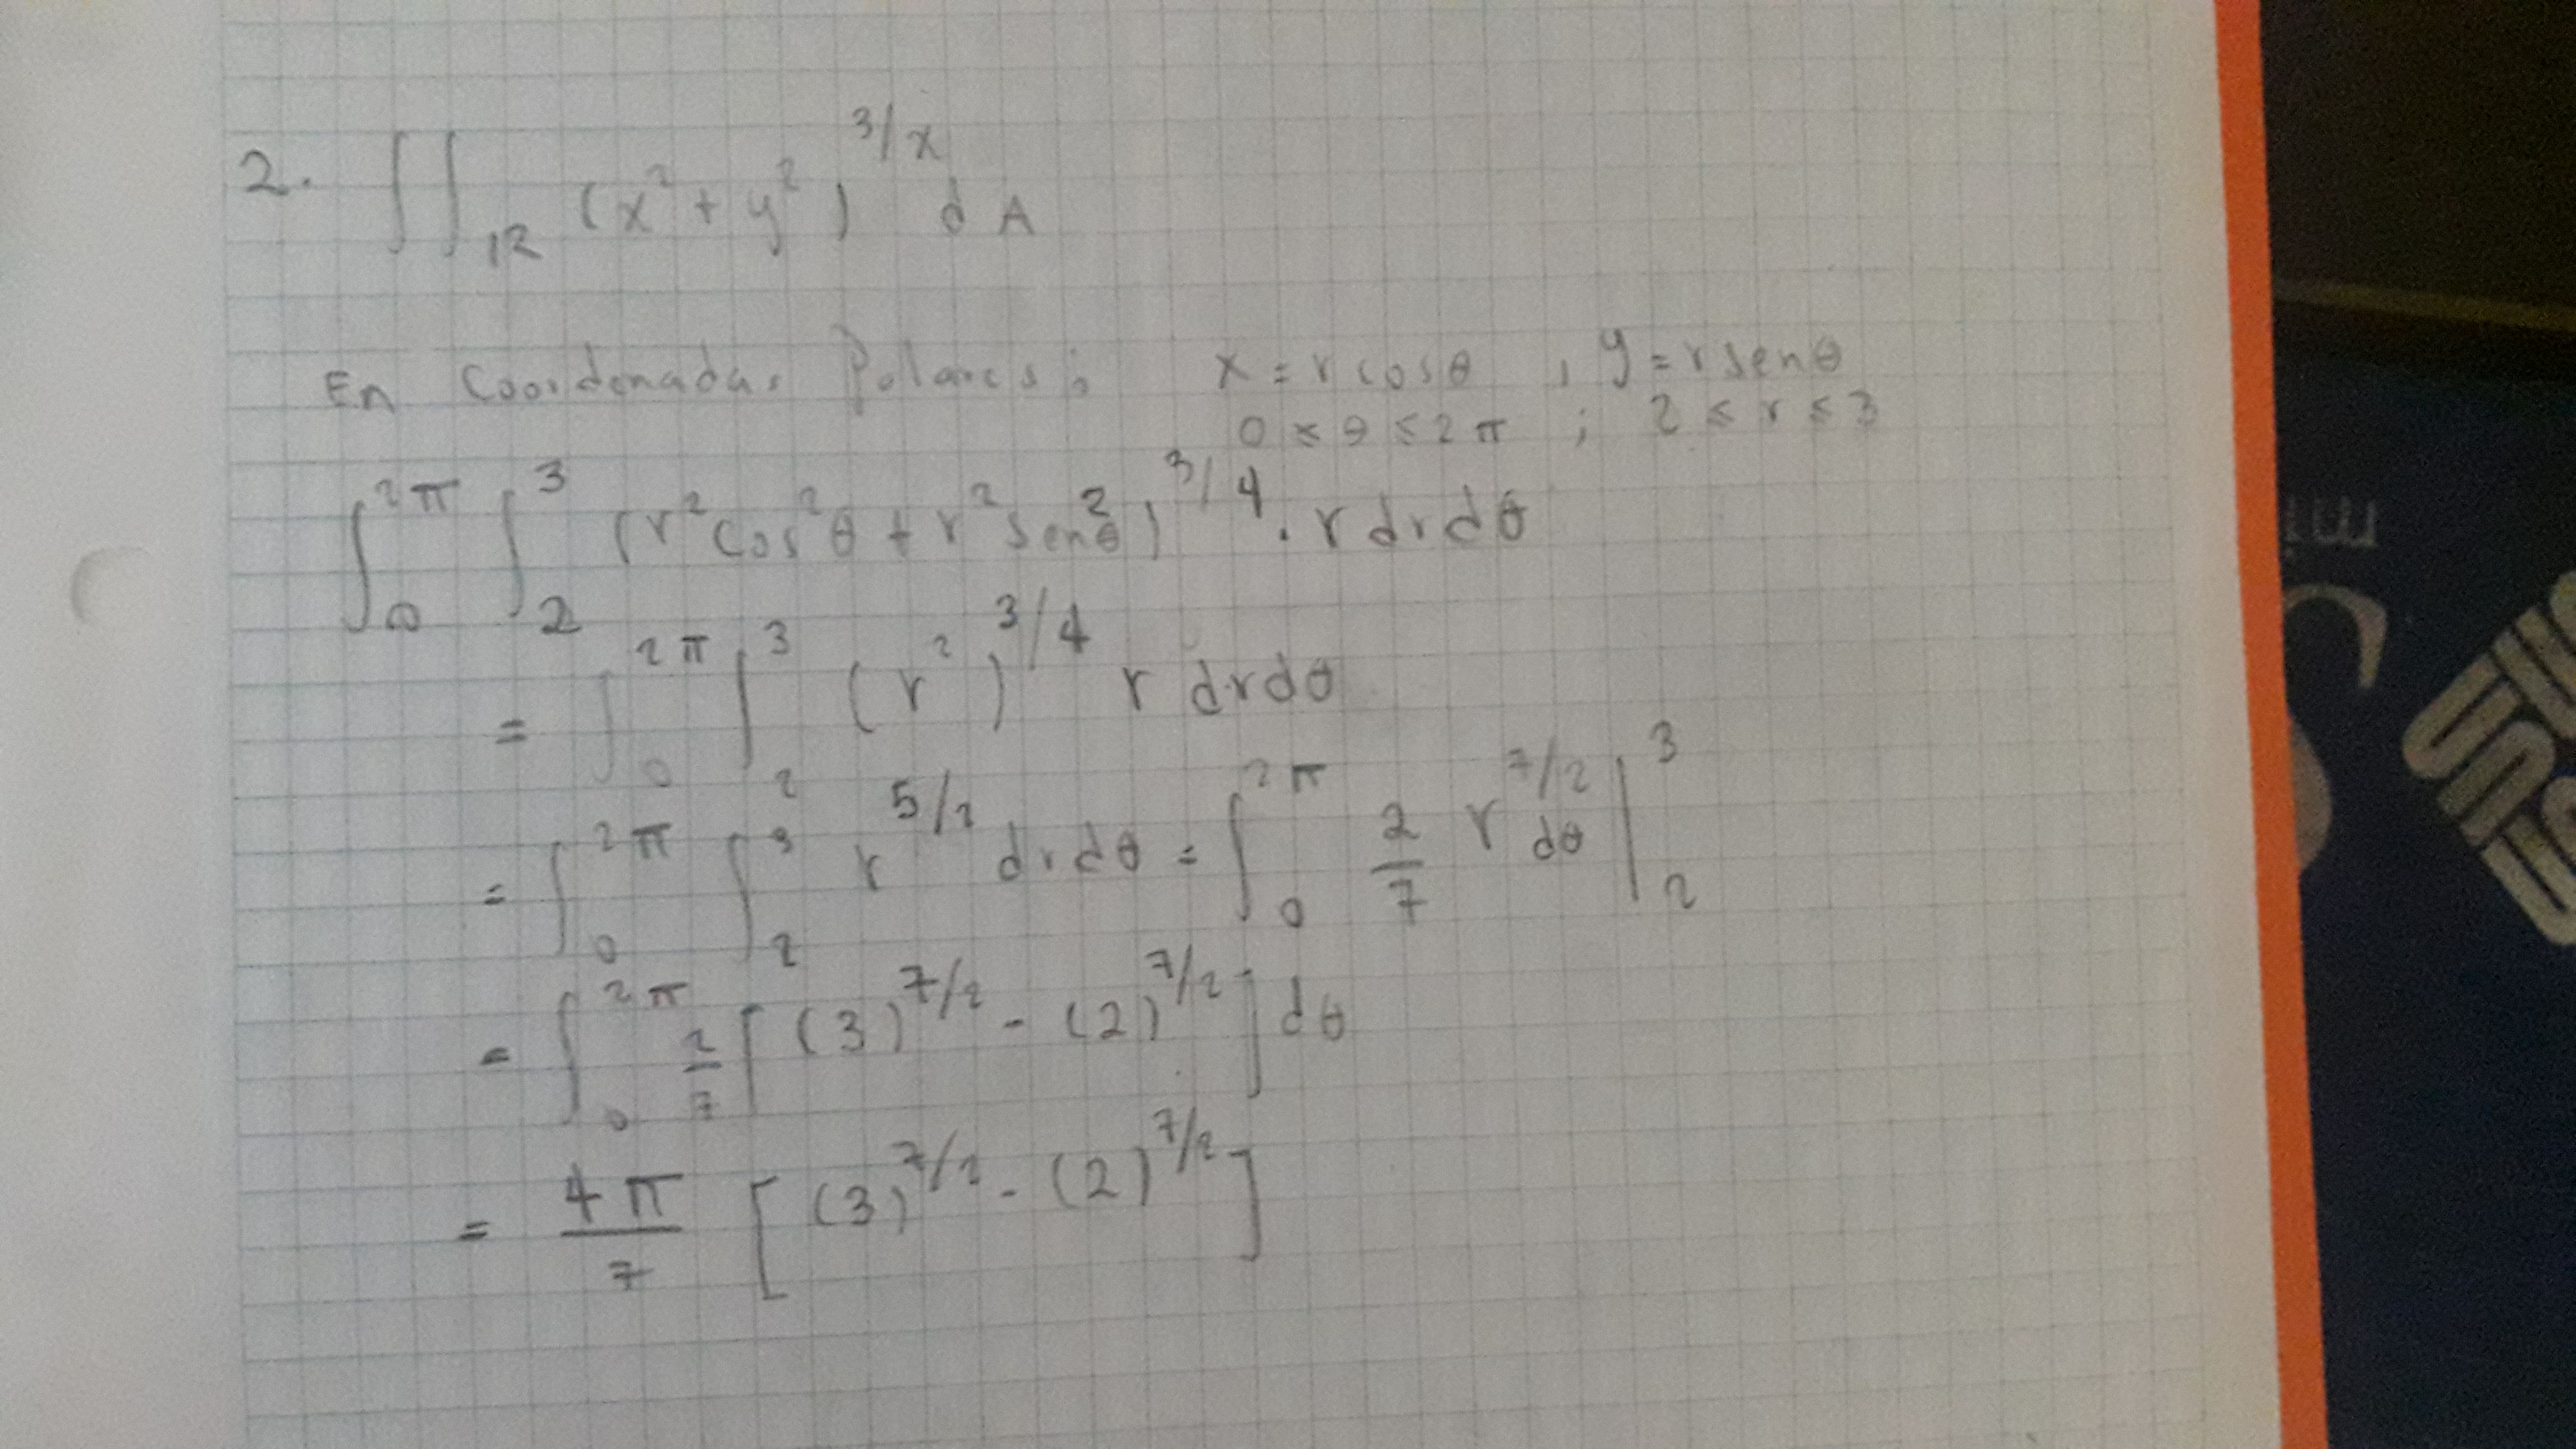 2. ∬_R (x² + y²)^3/x dA
En Coordenadas Polares ; x = r cosθ , y = r senθ
0 ≤ θ ≤ 2π ; 2 ≤ r ≤ 3
∫_0^2π ∫_2^3 (r² cos²θ + r² sen²θ)^3/4 . r dr dθ
= ∫_0^2π ∫_2^3 (r²)^3/4 r dr dθ
= ∫_0^2π ∫_2^3 r^5/2 dr dθ = ∫_0^2π 2/7 r^7/2 dθ |_2^3
= ∫_0^2π 2/7 [(3)^7/2 - (2)^7/2] dθ
= 4π/7 [(3)^7/2 - (2)^7/2]